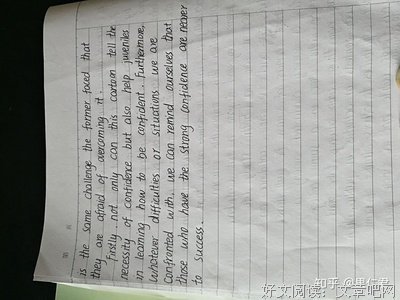 is the same challenge the former faced that
they are afraid of overcoming it.
Firstly, not only can this cartoon tell the
necessity of confidence but also help juveniles
in learning how to be confident. Furthermore,
whatever difficulties or situations we are
confronted with, we can remind ourselves that
those who have the strong confidence are nearer
to success.
知乎 @果仁君
好文阅读：文章吧网